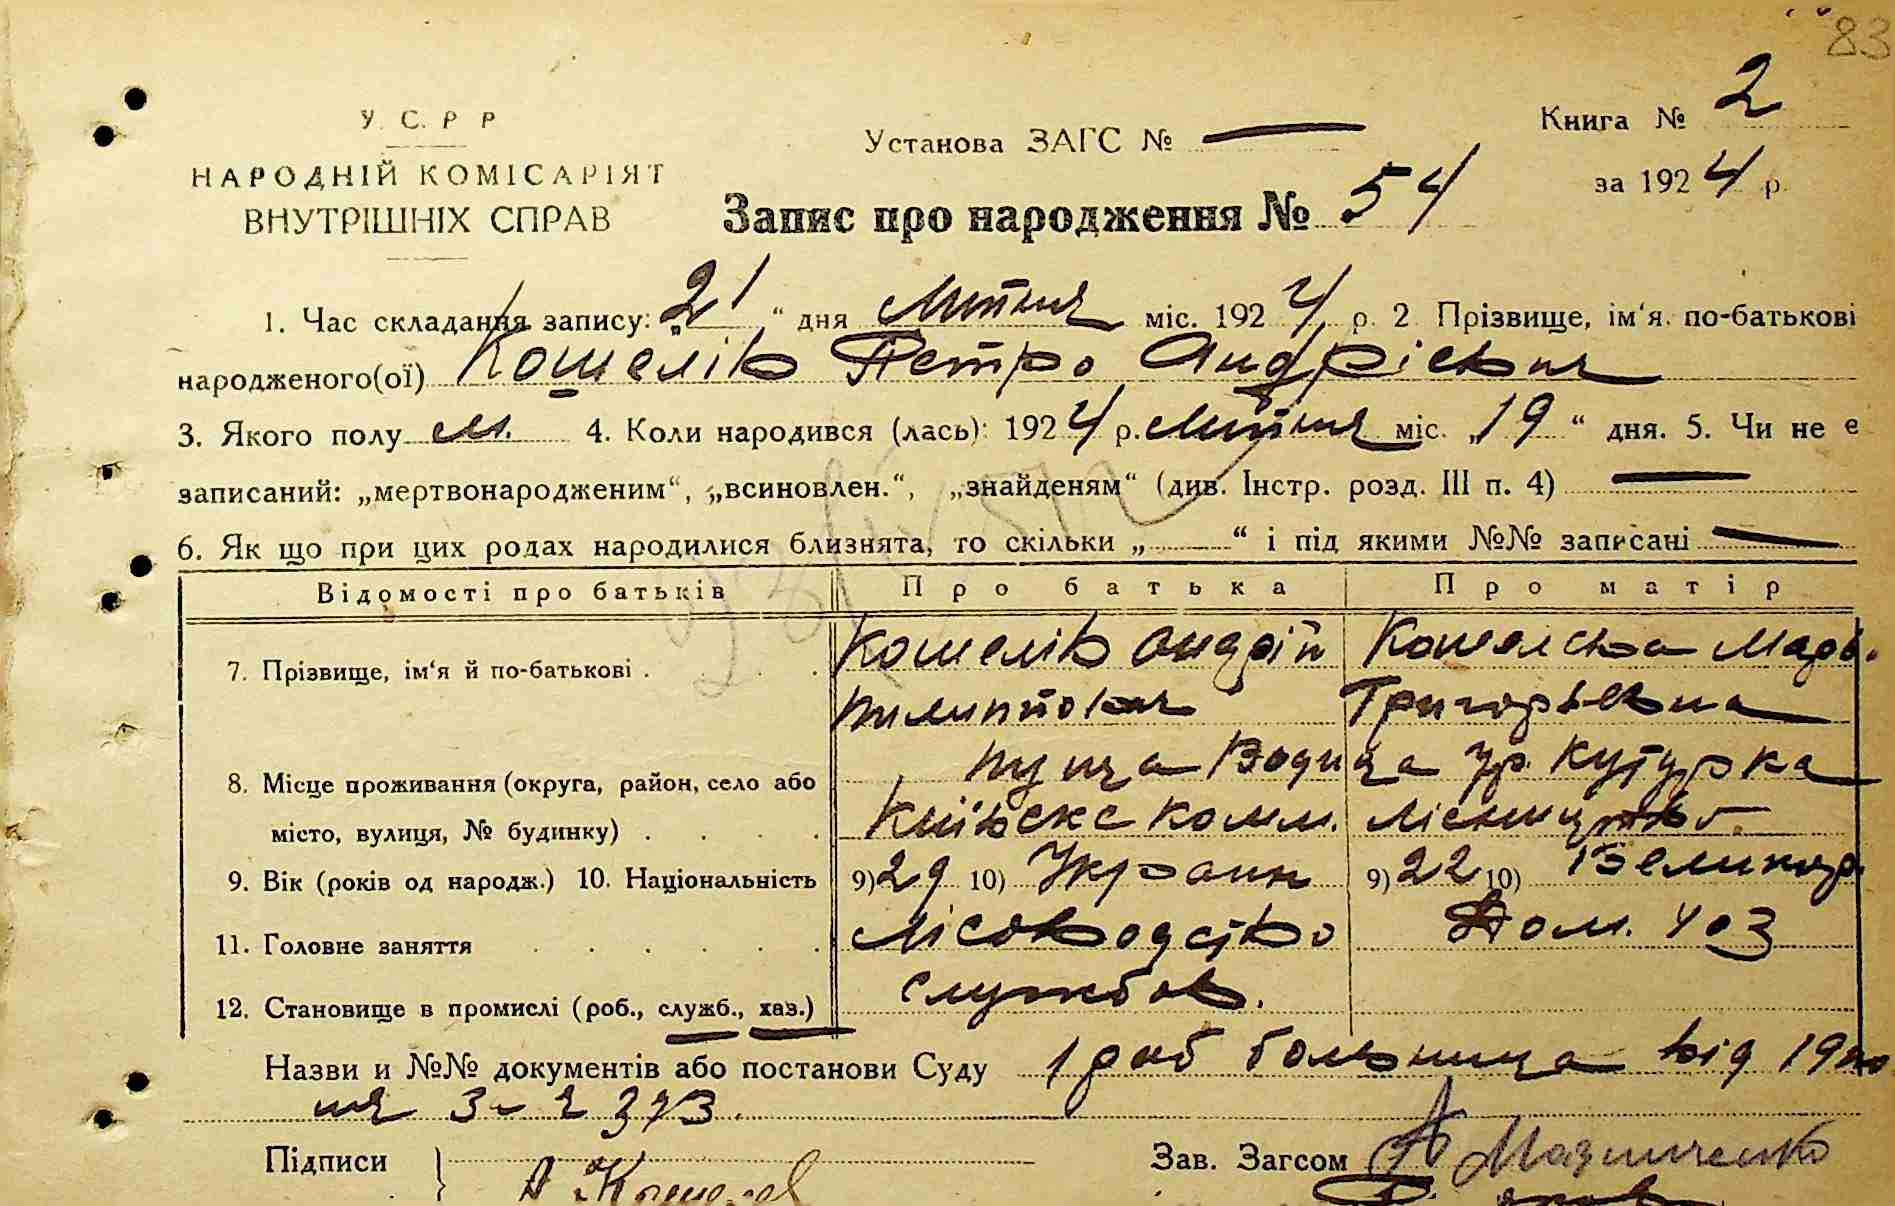 83
У. С. Р Р
Установа ЗАГС №
Книга № 2
НАРОДНІЙ КОМІСАРІЯТ
за 1924 р.
ВНУТРІШНІХ СПРАВ
Запис про народження № 54
1. Час складання запису: „21“ дня Липня міс. 1924 р. 2. Прізвище, ім'я, по-батькові
народженого(ої) Кошелів Петро Андрієвич
3. Якого полу м. 4. Коли народився (лась): 1924 р. Липня міс. „19“ дня. 5. Чи не є
записаний: „мертвонародженим“, „всиновлен.“, „знайденям“ (див. Інстр. розд. III п. 4)
6. Як що при цих родах народилися близнята, то скільки „ “ і під якими №№ записані
Відомості про батьків Про батька Про матір
7. Прізвище, ім'я й по-батькові . Кошелів Андрій Кошелєва Марь.
Пилиппович Григорьевна
8. Місце проживання (округа, район, село або Пуща Водица ур. Кутурка
місто, вулиця, № будинку) . Київске комм. лісництво.
9. Вік (років од народж.) 10. Національність 9) 29 10) Україн 9) 22 10) Великор.
11. Головне заняття Лісоводство Дом. хоз
12. Становище в промислі (роб., служб., хаз.) службов.
Назви и №№ документів або постанови Суду 1 раб больница від 19 лип
ня за № 373.
Підписи А Кошелев Зав. Загсом